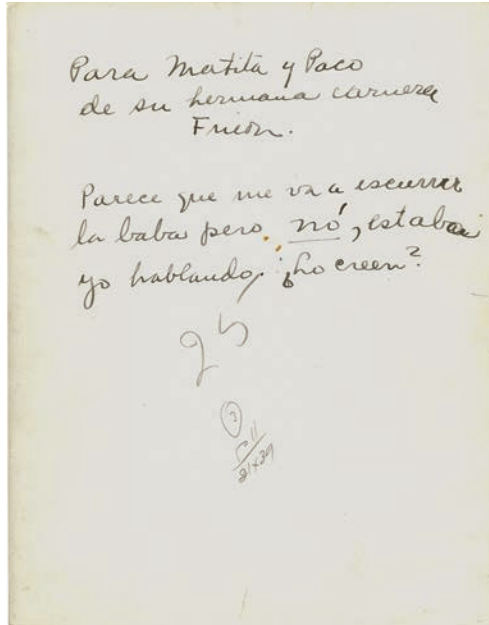 Para Matita y Paco
de su hermana carnera
Frieda.
Parece que me va a escurrir
la baba pero, nó, estaba
yo hablando. ¿Lo creen?
25
3
21x29